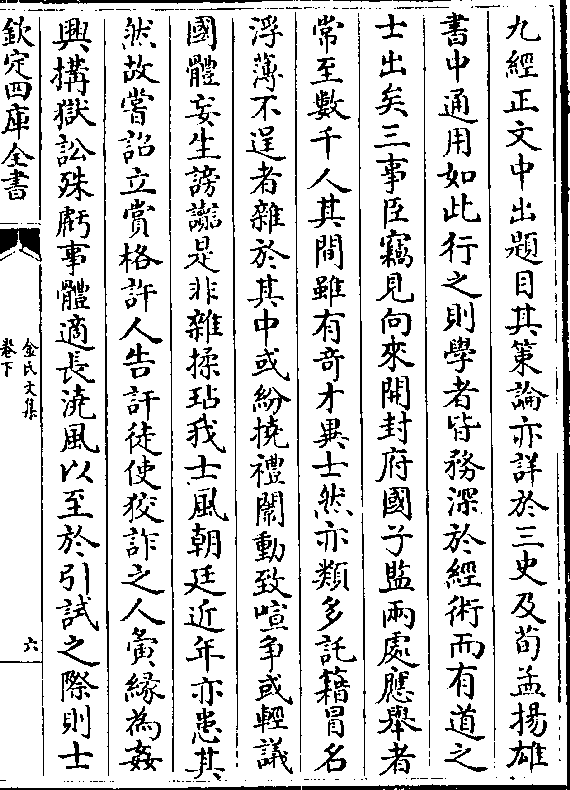 九經正文中出題目其策論亦詳於三史及荀孟揚雄
書中通用如此行之則學者皆務深於經術而有道之
士出矣三事臣竊見向來開封府國子監兩處應舉者
常至數千人其間雖有奇才異士然亦類多託籍冒名
浮薄不逞者雜於其中或紛撓禮闈動致喧爭或輕議
國體妄生謗讟是非雜揉玷我士風朝廷近年亦患其
然故嘗詔立賞格許人告訐徒使狡詐之人夤緣為姦
興搆獄訟殊虧事體適長澆風以至於引試之際則士
欽定四庫全書
金氏文集
卷下
六